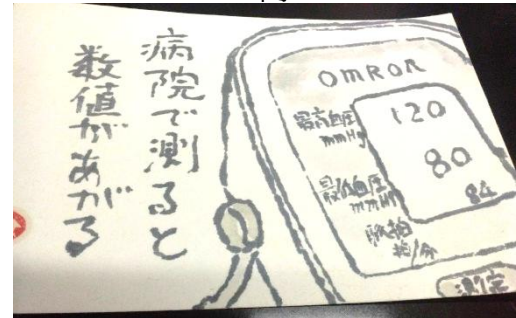 病院で測ると
数値があがる
OMRON
最高血圧
mmHg
120
最低血圧
mmHg
80
脈拍
拍/分
84
測定